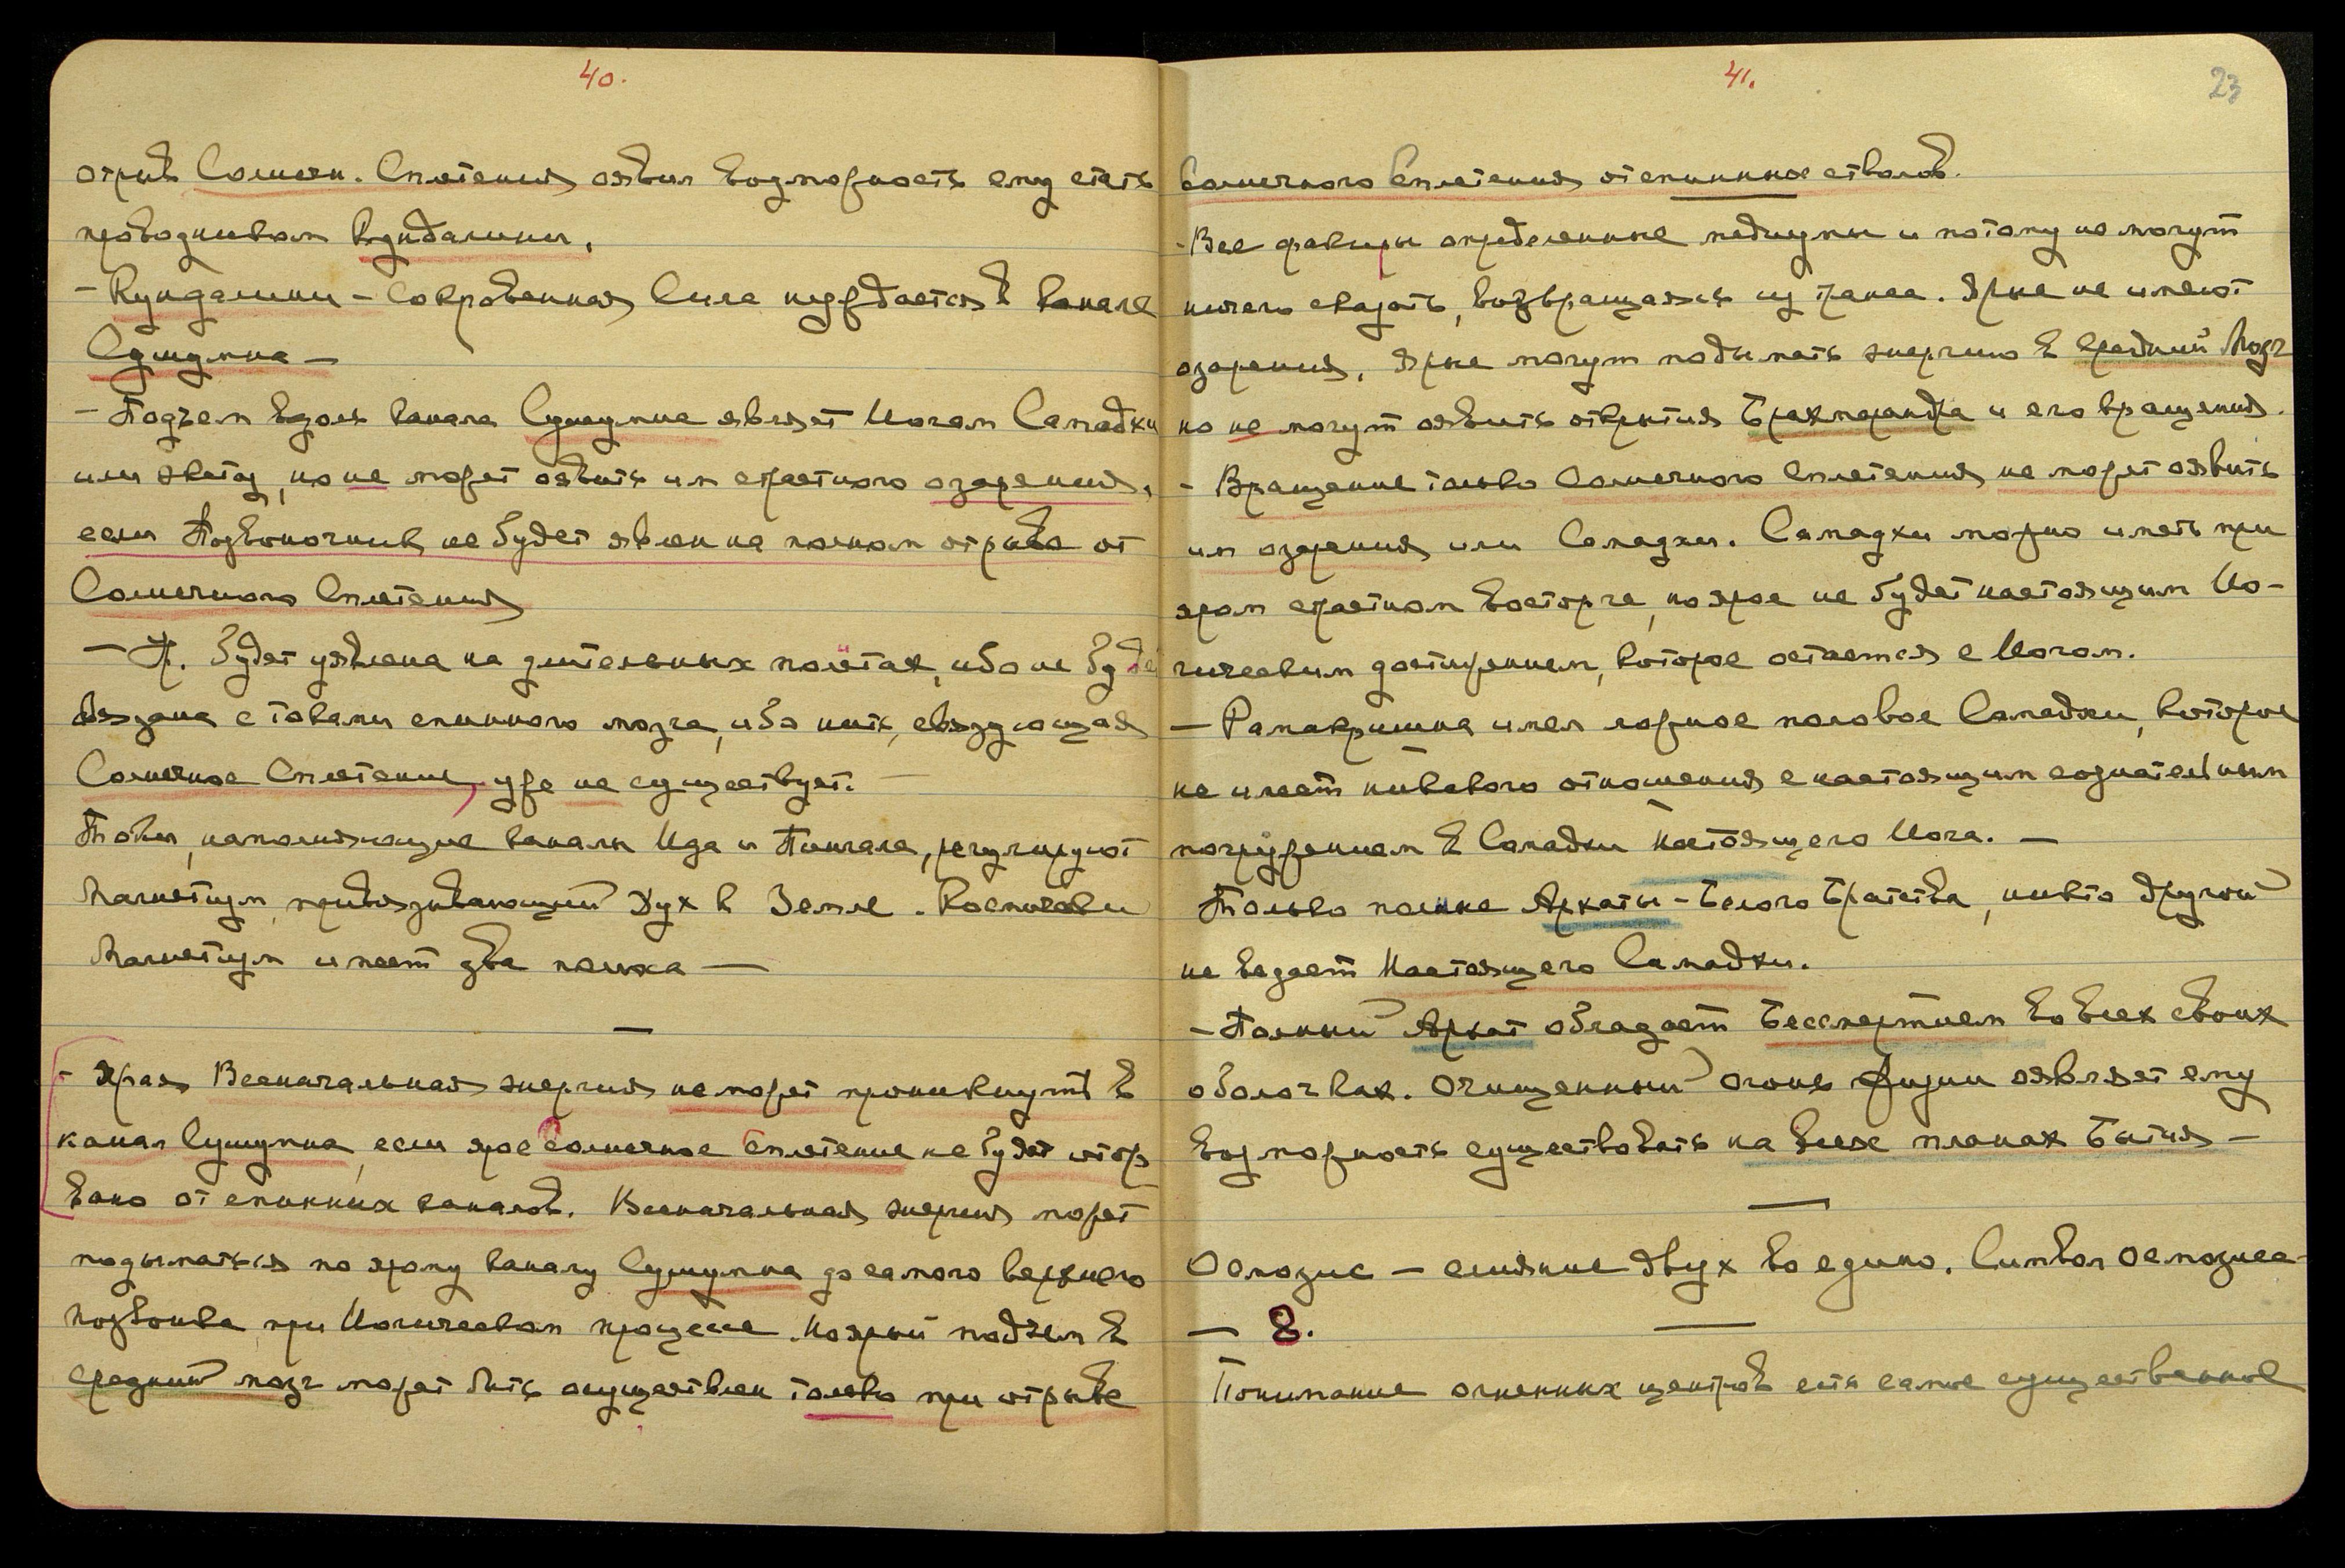 40.
отрыв Солнечн. Сплетения оявил возможность ему стать
проводником Кундалини.
- Кундалини - Сокровенная Сила нуждается в канале
Сушумна -
- Подъем вдоль канала Сушумна являет Йогам Самадхи
или экстаз, но не может оявить им страстного озарения,
если Позвоночник не будет явлен на полном отрыве от
Солнечного Сплетения
- будет уявлена на длительных полётах, ибо не буде
связана с токами спинного мозга, ибо нить, связующая
Солнечное Сплетение, уже не существует. -
Токи, наполняющие каналы Ида и Пингала, регулируют
Магнетизм, привязывающий Дух к Земле. Космически
Магнетизм имеет два полюса -
-
- Ярая Всеначальная энергия не может проникнуть в
канал Сушумна, если ярое солнечное сплетение не будет отор
вано от спинных каналов. Всеначальная энергия может
подыматься по ярому каналу Сушумна до самого верхнего
позвонка при Йогическом процессе. Но ярый подъем в
средний мозг может быть осуществлен только при отрыве
41.
23
Солнечного Сплетения от спинных стволов.
- Все факиры определенные медиумы и потому не могут
ничего сказать, возвращаясь из транса. Ярые не имеют
озарения. Ярые могут подымать энергию в средний Мозг
но не могут оявить открытия Брахмарандра и его вращения.
- Вращение только Солнечного Сплетения не может оявить
им озарения или Самадхи. Самадхи можно иметь при
яром страстном восторге, но ярое не будет настоящим Йо-
гическим достижением, которое остается с Йогом.
- Рамакришна имел ложное половое Самадхи, которое
не имеет никакого отношения с настоящим сознательным
погружением в Самадхи Настоящего Йога. -
Только полные Архаты - Белого Братства, никто другой
не ведает Настоящего Самадхи.
- Полный Архат обладает Бессмертием во всех своих
оболочках. Очищенный Огонь Физии оявляет ему
возможность существовать на всех планах Бытия -
Осмозис - слияние двух во едино. Символ Осмозиса
- 8.
Понимание огненных центров есть самое существенное